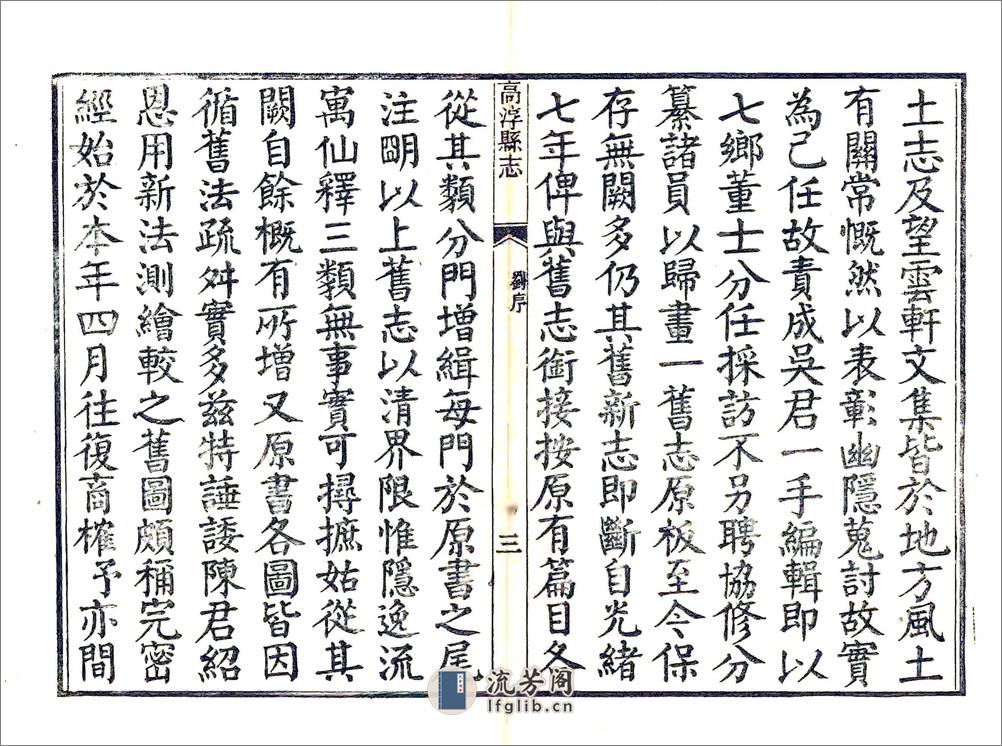 土志及望雲軒文集皆於地方風土
有關常慨然以表彰幽隱蒐討故實
為己任故責成吳君一手編輯即以
七鄉董士分任採訪不另聘協修分
纂諸員以歸畫一舊志原板至今保
存無闕多仍其舊新志即斷自光緒
七年俾與舊志銜接按原有篇目各
高淳縣志
劉序
三
從其類分門增緝每門於原書之尾
注明以上舊志以清界限惟隱逸流
寓仙釋三類無事實可撏摭姑從其
闕自餘概有所增又原書各圖皆因
循舊法疏舛實多茲特諈諉陳君紹
恩用新法測繪較之舊圖頗稱完密
經始於本年四月往復商榷予亦間
流芳阁
lfglib.cn